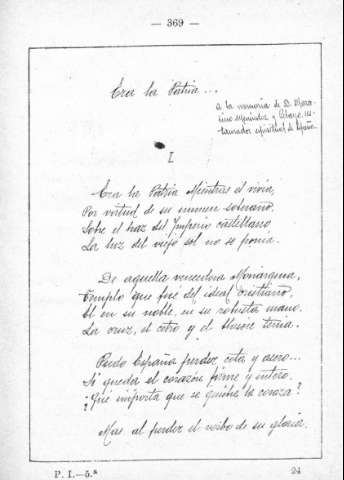 — 369 —
Era la Patria...
a la memoria de D. Marce-
lino Menéndez y Pelayo, res-
taurador espiritual de España.
I
Era la Patria. Mientras él vivía,
Por virtud de su numen soberano,
Sobre el haz del Imperio castellano
La luz del viejo sol no se ponía.
De aquella veneranda Monarquía,
Templo que fué del ideal cristiano,
Él en su noble, en su robusta mano
La cruz, el cetro y el blasón tenía.
Pudo España perder cota y acero...
Le quedó el corazón firme y entero.
¿Qué importa que se quiebre la coraza?
Mas, al perder el verbo de su gloria,
P. I.—5.ª
24